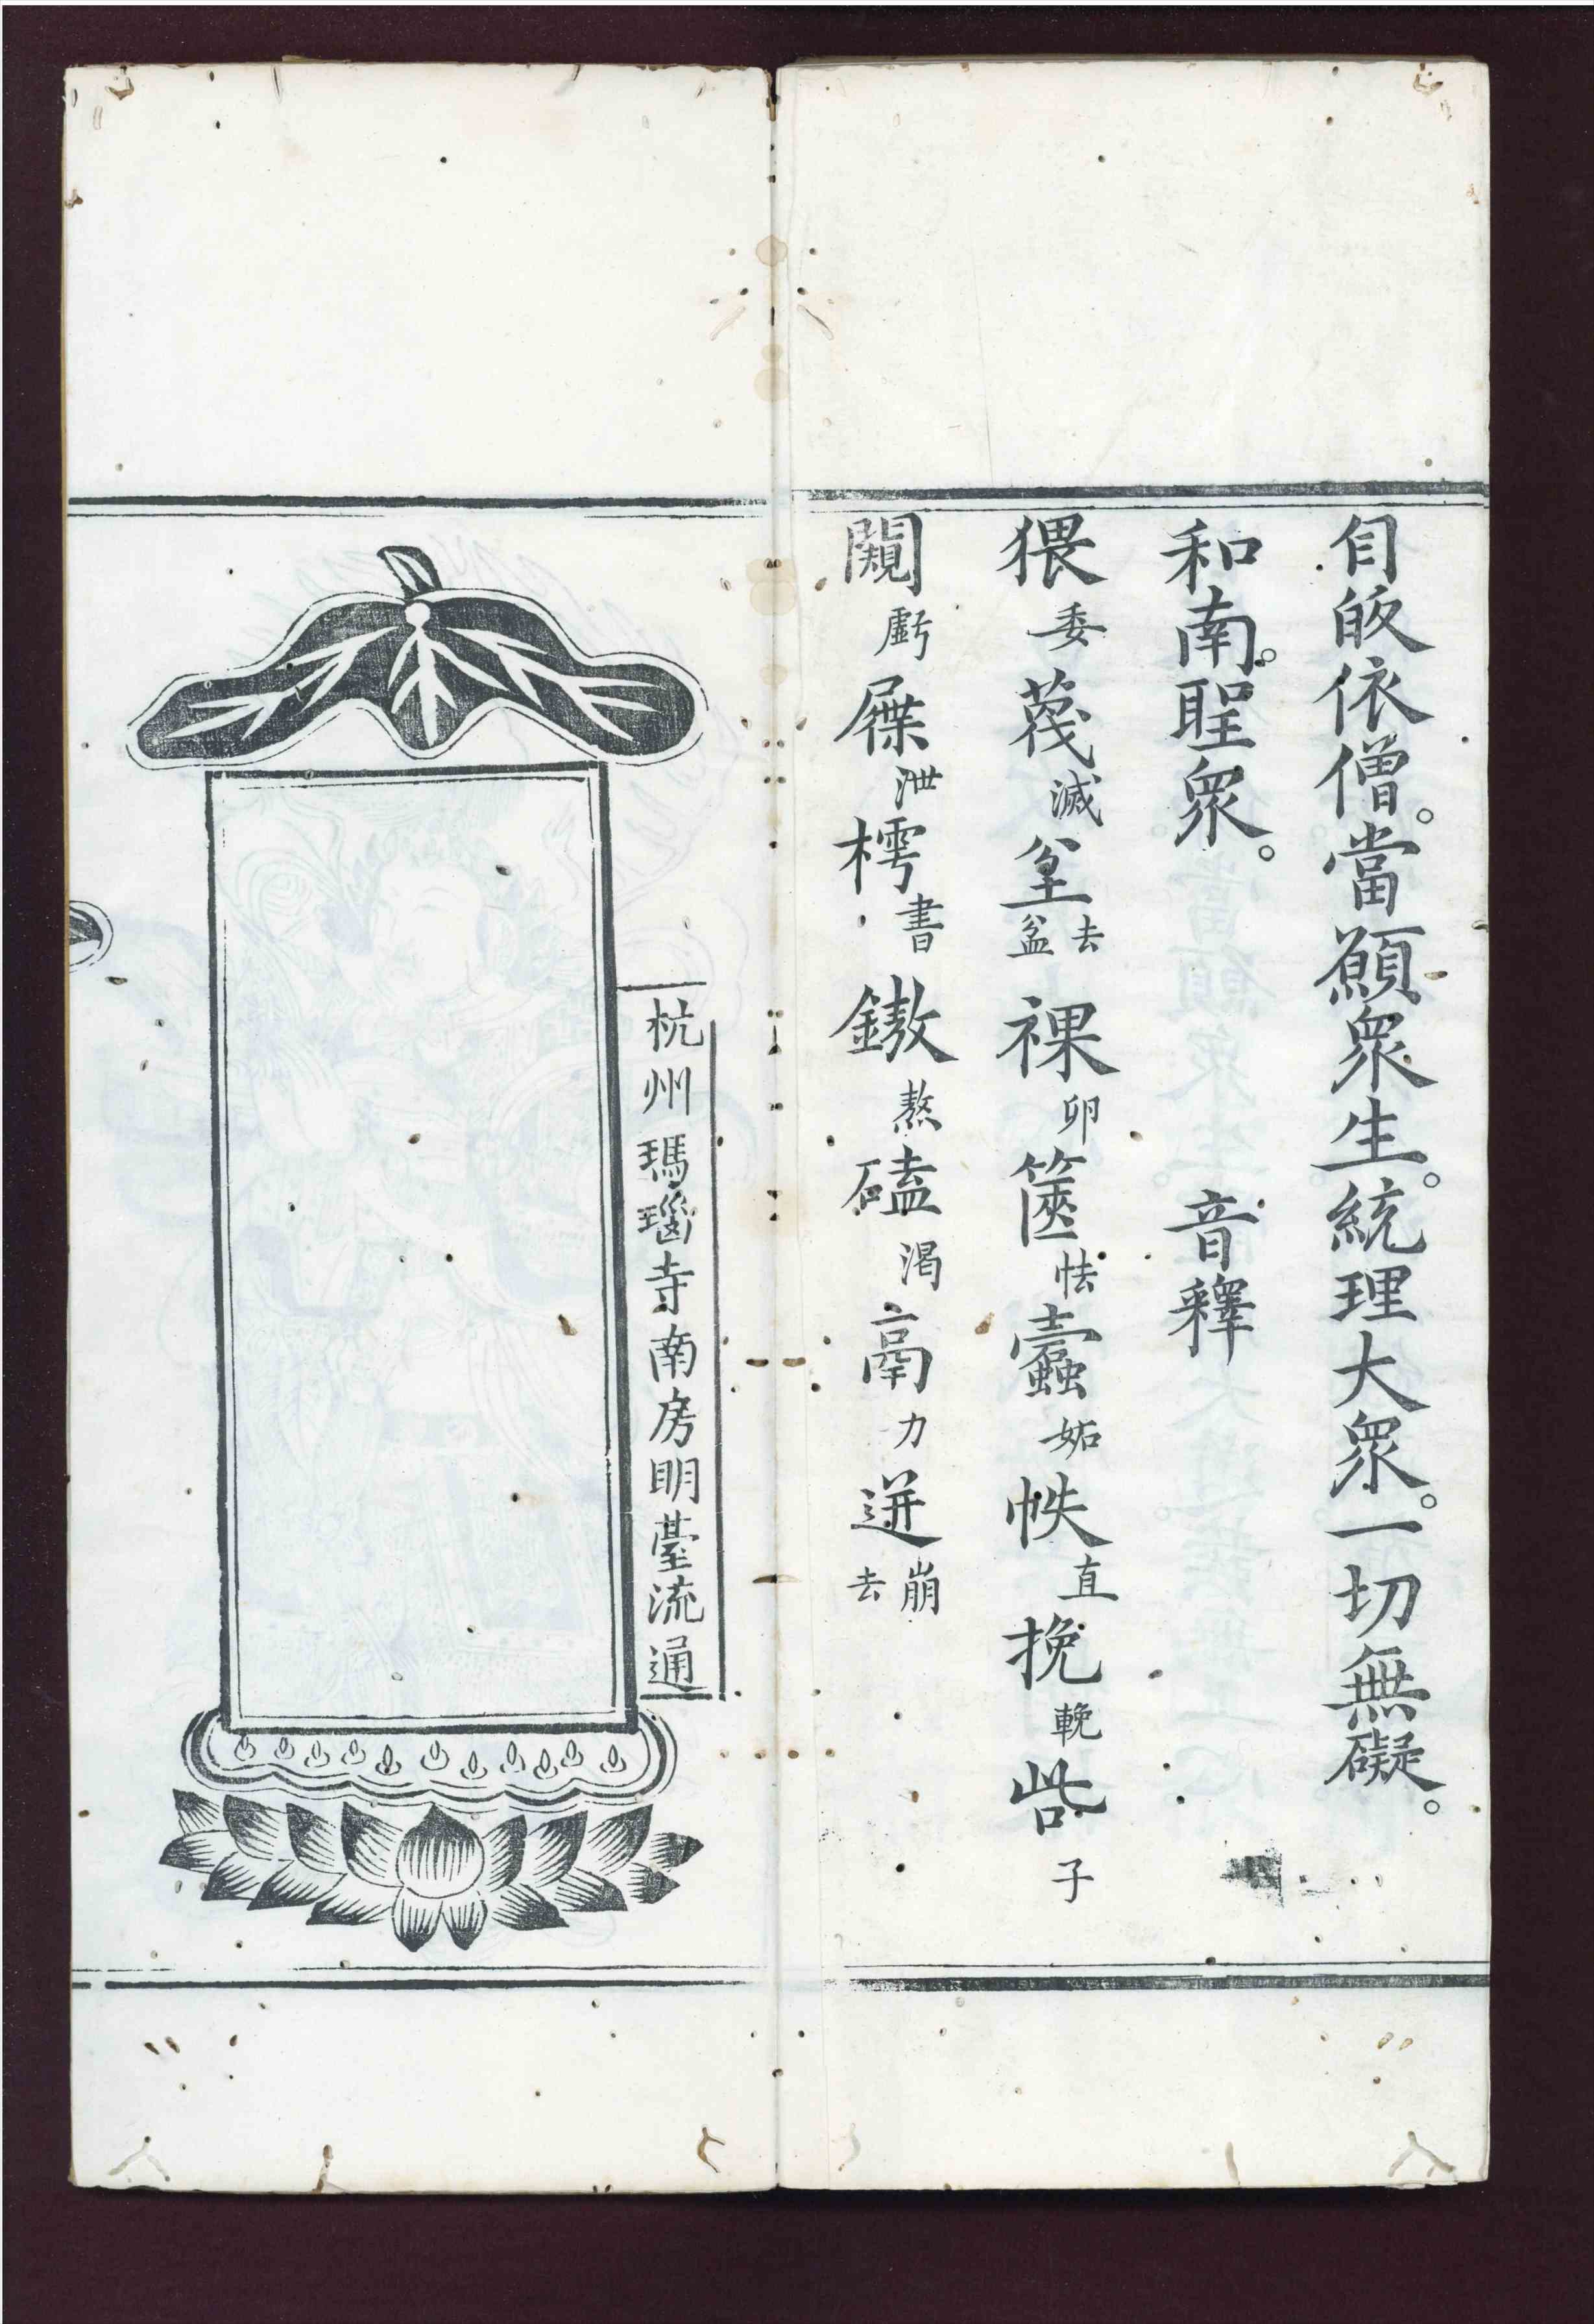 自皈依僧。當願衆生。統理大衆。一切無礙。
和南。聖衆。　音釋
猥委蔑滅坌盆去裸卵篋怯蠹妬帙直挽輓呰子
闚虧屧泄樗書鏾熬磕渴鬲力迸崩去
杭州瑪瑙寺南房明臺流通